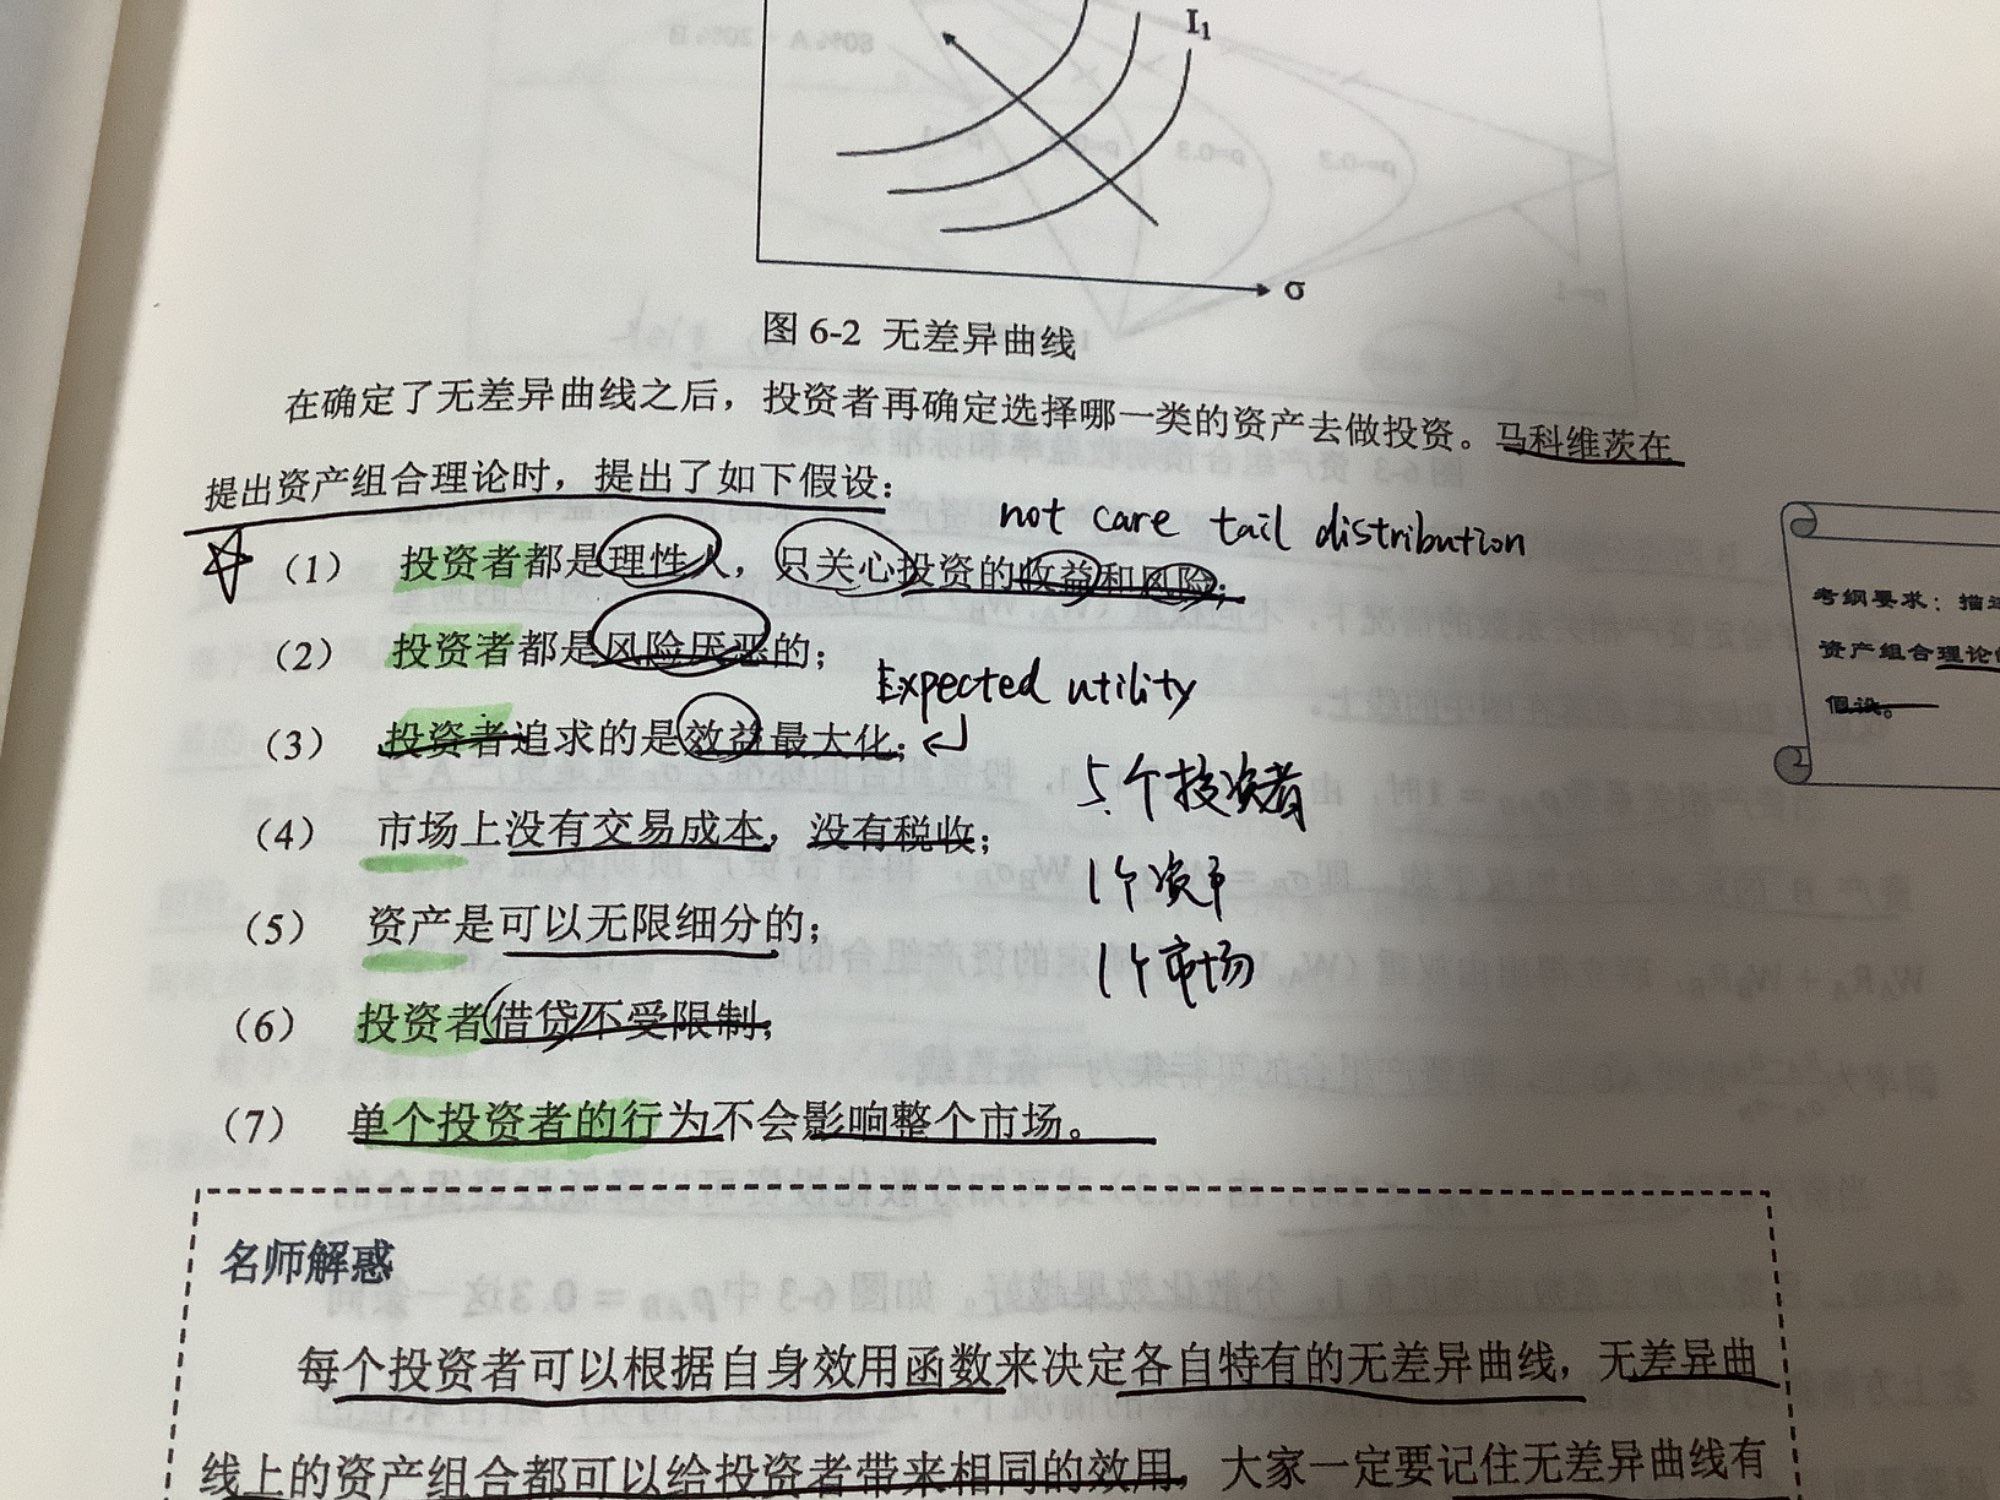 I₁
σ
图 6-2 无差异曲线
在确定了无差异曲线之后，投资者再确定选择哪一类的资产去做投资。马科维茨在
提出资产组合理论时，提出了如下假设：
not care tail distribution
（1） 投资者都是理性人，只关心投资的收益和风险；
（2） 投资者都是风险厌恶的；
Expected utility
（3） 投资者追求的是效益最大化；
5个投资者
（4） 市场上没有交易成本，没有税收；
1个资产
（5） 资产是可以无限细分的；
1个市场
（6） 投资者借贷不受限制；
（7） 单个投资者的行为不会影响整个市场。
考纲要求：描述
资产组合理论的
假设。
名师解惑
每个投资者可以根据自身效用函数来决定各自特有的无差异曲线，无差异曲
线上的资产组合都可以给投资者带来相同的效用，大家一定要记住无差异曲线有